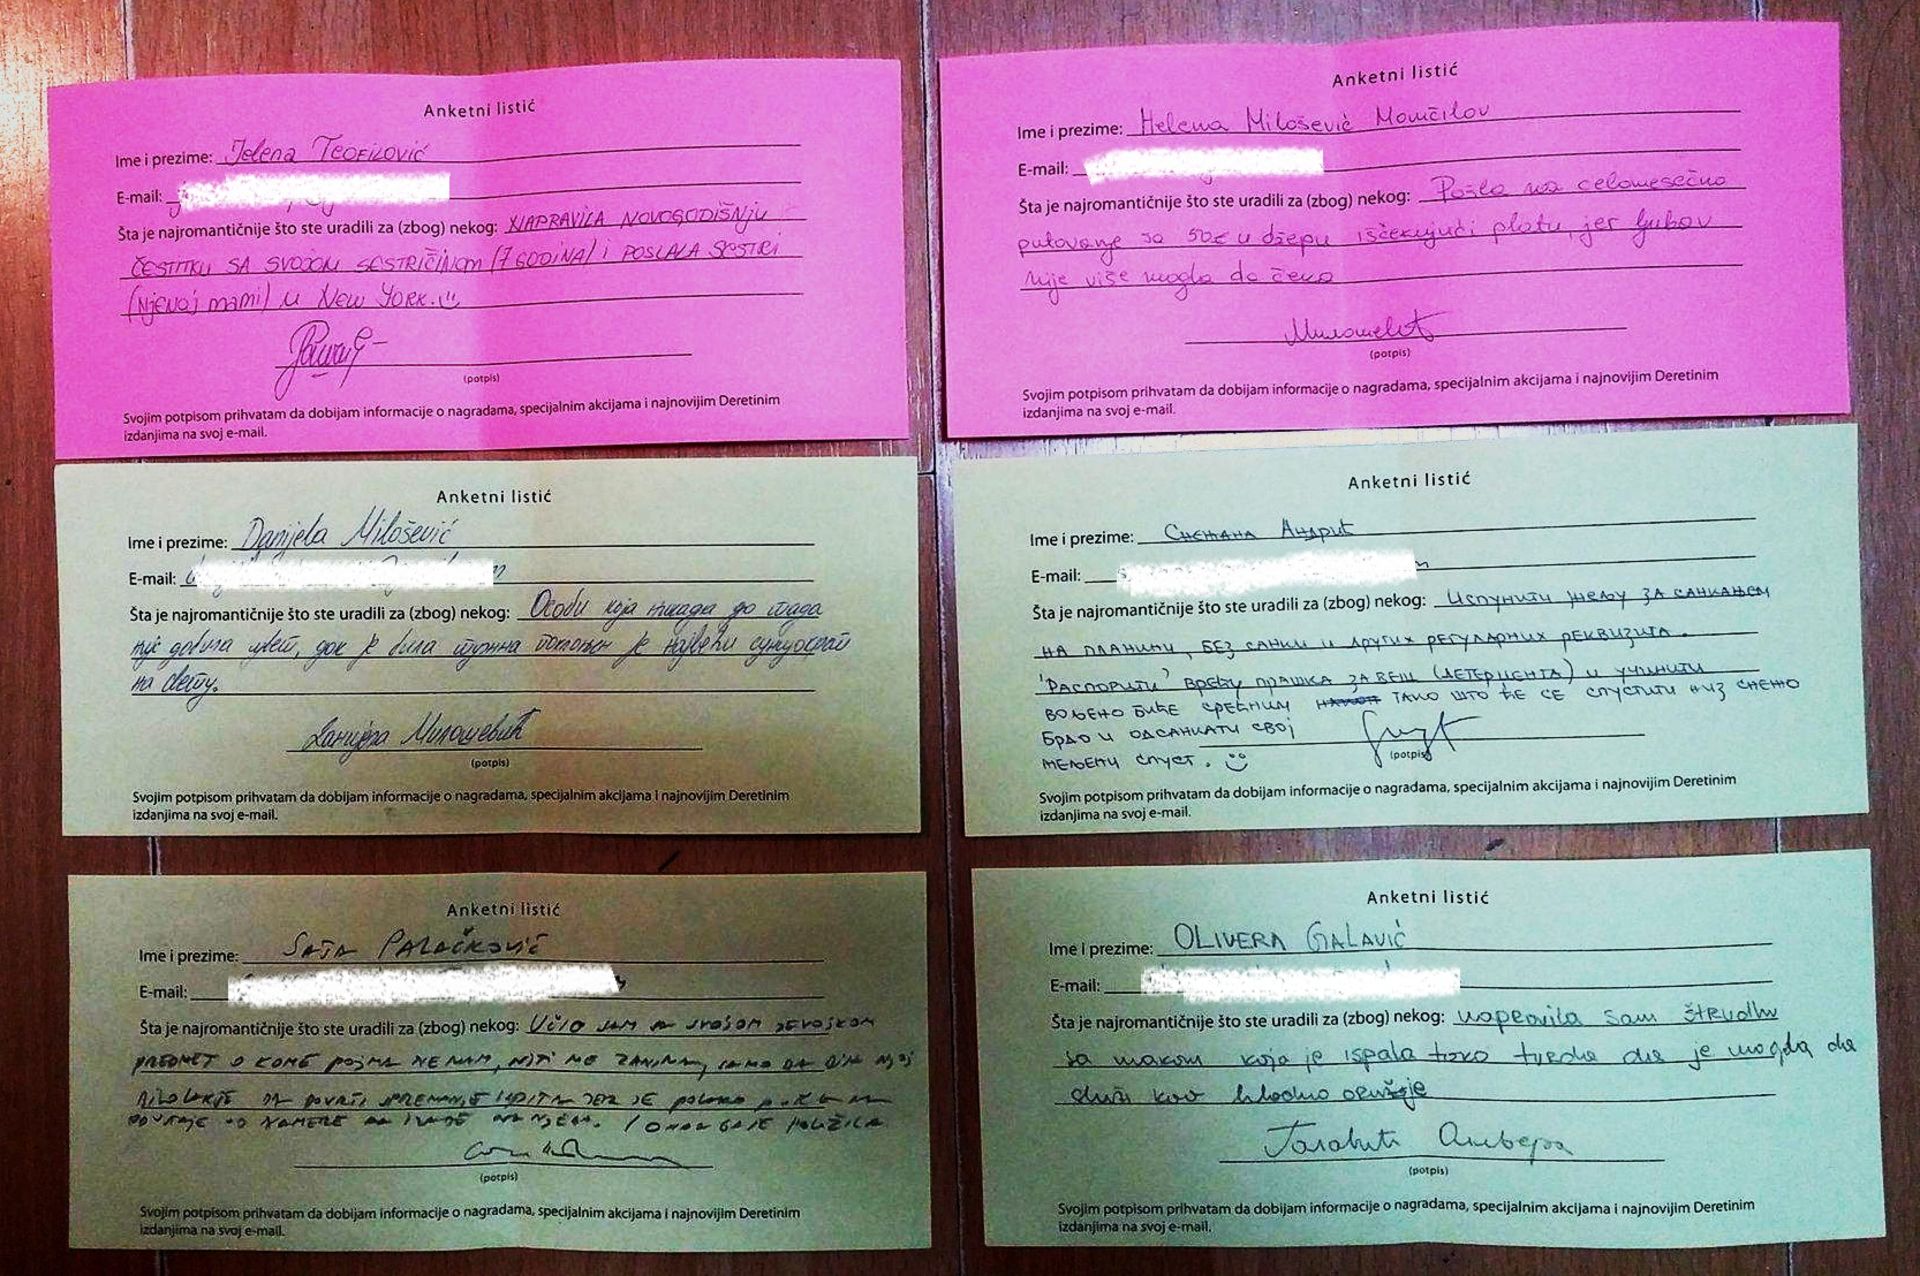 Anketni listić
Ime i prezime: Jelena Teofilović
E-mail:
Šta je najromantičnije što ste uradili za (zbog) nekog: NAPRAVILA NOVOGODIŠNJU
ČESTITKU SA SVOJOM SESTRIČINOM (7 GODINA) I POSLALA SESTRI
(NJENOJ MAMI) U NEW YORK.
(potpis)
Svojim potpisom prihvatam da dobijam informacije o nagradama, specijalnim akcijama i najnovijim Deretinim
izdanjima na svoj e-mail.
Anketni listić
Ime i prezime: Helena Milošević Momčilov
E-mail:
Šta je najromantičnije što ste uradili za (zbog) nekog: Pošla na celomesečno
putovanje sa 50€ u džepu iščekujući platu, jer ljubav
nije više mogla da čeka
(potpis)
Svojim potpisom prihvatam da dobijam informacije o nagradama, specijalnim akcijama i najnovijim Deretinim
izdanjima na svoj e-mail.
Anketni listić
Ime i prezime: Danijela Milošević
E-mail:
Šta je najromantičnije što ste uradili za (zbog) nekog: Особи која никада до тада
није добила цвет, док је била тужна поклоњен је највећи сунцокрет
на свету.
Данијела Милошевић
(potpis)
Svojim potpisom prihvatam da dobijam informacije o nagradama, specijalnim akcijama i najnovijim Deretinim
izdanjima na svoj e-mail.
Anketni listić
Ime i prezime: Снежана Андрић
E-mail:
Šta je najromantičnije što ste uradili za (zbog) nekog: ИСПУНИТИ ЖЕЉУ ЗА САНКАЊЕМ
НА ПЛАНИНИ, БЕЗ САНКИ И ДРУГИХ РЕГУЛАРНИХ РЕКВИЗИТА.
'РАСПОРИТИ' ВРЕЋУ ПРАШКА ЗА ВЕШ (ДЕТЕРЏЕНТА) И УЧИНИТИ
ВОЉЕНО БИЋЕ СРЕЋНИМ ТАКО ШТО ЋЕ СЕ СПУСТИТИ НИЗ СНЕЖНО
БРДО И ОДСАНКАТИ СВОЈ
СПУСТ.
(potpis)
Svojim potpisom prihvatam da dobijam informacije o nagradama, specijalnim akcijama i najnovijim Deretinim
izdanjima na svoj e-mail.
Anketni listić
Ime i prezime: SAŠA PALAČKOVIĆ
E-mail:
Šta je najromantičnije što ste uradili za (zbog) nekog: UČIO SAM SA SVOJOM DEVOJKOM
PREDMET O KOME POJMA NEMAM, NITI ME ZANIMA, SAMO DA BIH NJOJ
BILO LAKŠE DA SPREMANJE ISPITA JER JE
OD NAMERE DA IZAĐE NA NJEGA. I ONDA GA JE POLOŽILA
(potpis)
Svojim potpisom prihvatam da dobijam informacije o nagradama, specijalnim akcijama i najnovijim Deretinim
izdanjima na svoj e-mail.
Anketni listić
Ime i prezime: OLIVERA GALAVIĆ
E-mail:
Šta je najromantičnije što ste uradili za (zbog) nekog: napravila sam štrudlu
sa makom koja je ispala toko tvrda da je mogla da
služi kao hladno oružje
Галавић Оливера
(potpis)
Svojim potpisom prihvatam da dobijam informacije o nagradama, specijalnim akcijama i najnovijim Deretinim
izdanjima na svoj e-mail.